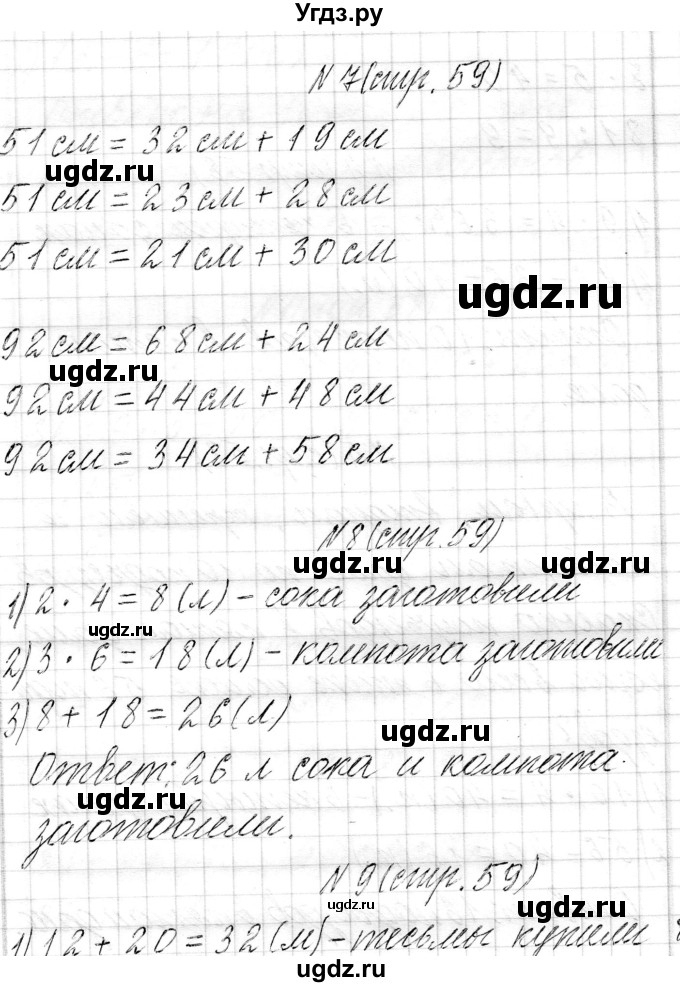 Угдз.ру
N 7(стр. 59)
51 см = 32 см + 19 см
ugdz.ru
51 см = 23 см + 28 см
51 см = 21 см + 30 см
ugdz.ru
92 см = 68 см + 24 см
ugdz.ru
92 см = 44 см + 48 см
92 см = 34 см + 58 см
N 8(стр. 59)
ugdz.ru
1) 2 · 4 = 8 (л) - сока заготовили
ugdz.ru
2) 3 · 6 = 18 (л) - компота заготовили
3) 8 + 18 = 26 (л)
Ответ: 26 л сока и компота
ugdz.ru
заготовили.
N 9(стр. 59)
ugdz.ru
1) 12 + 20 = 32 (м) - тесьмы купили
ugdz.ru